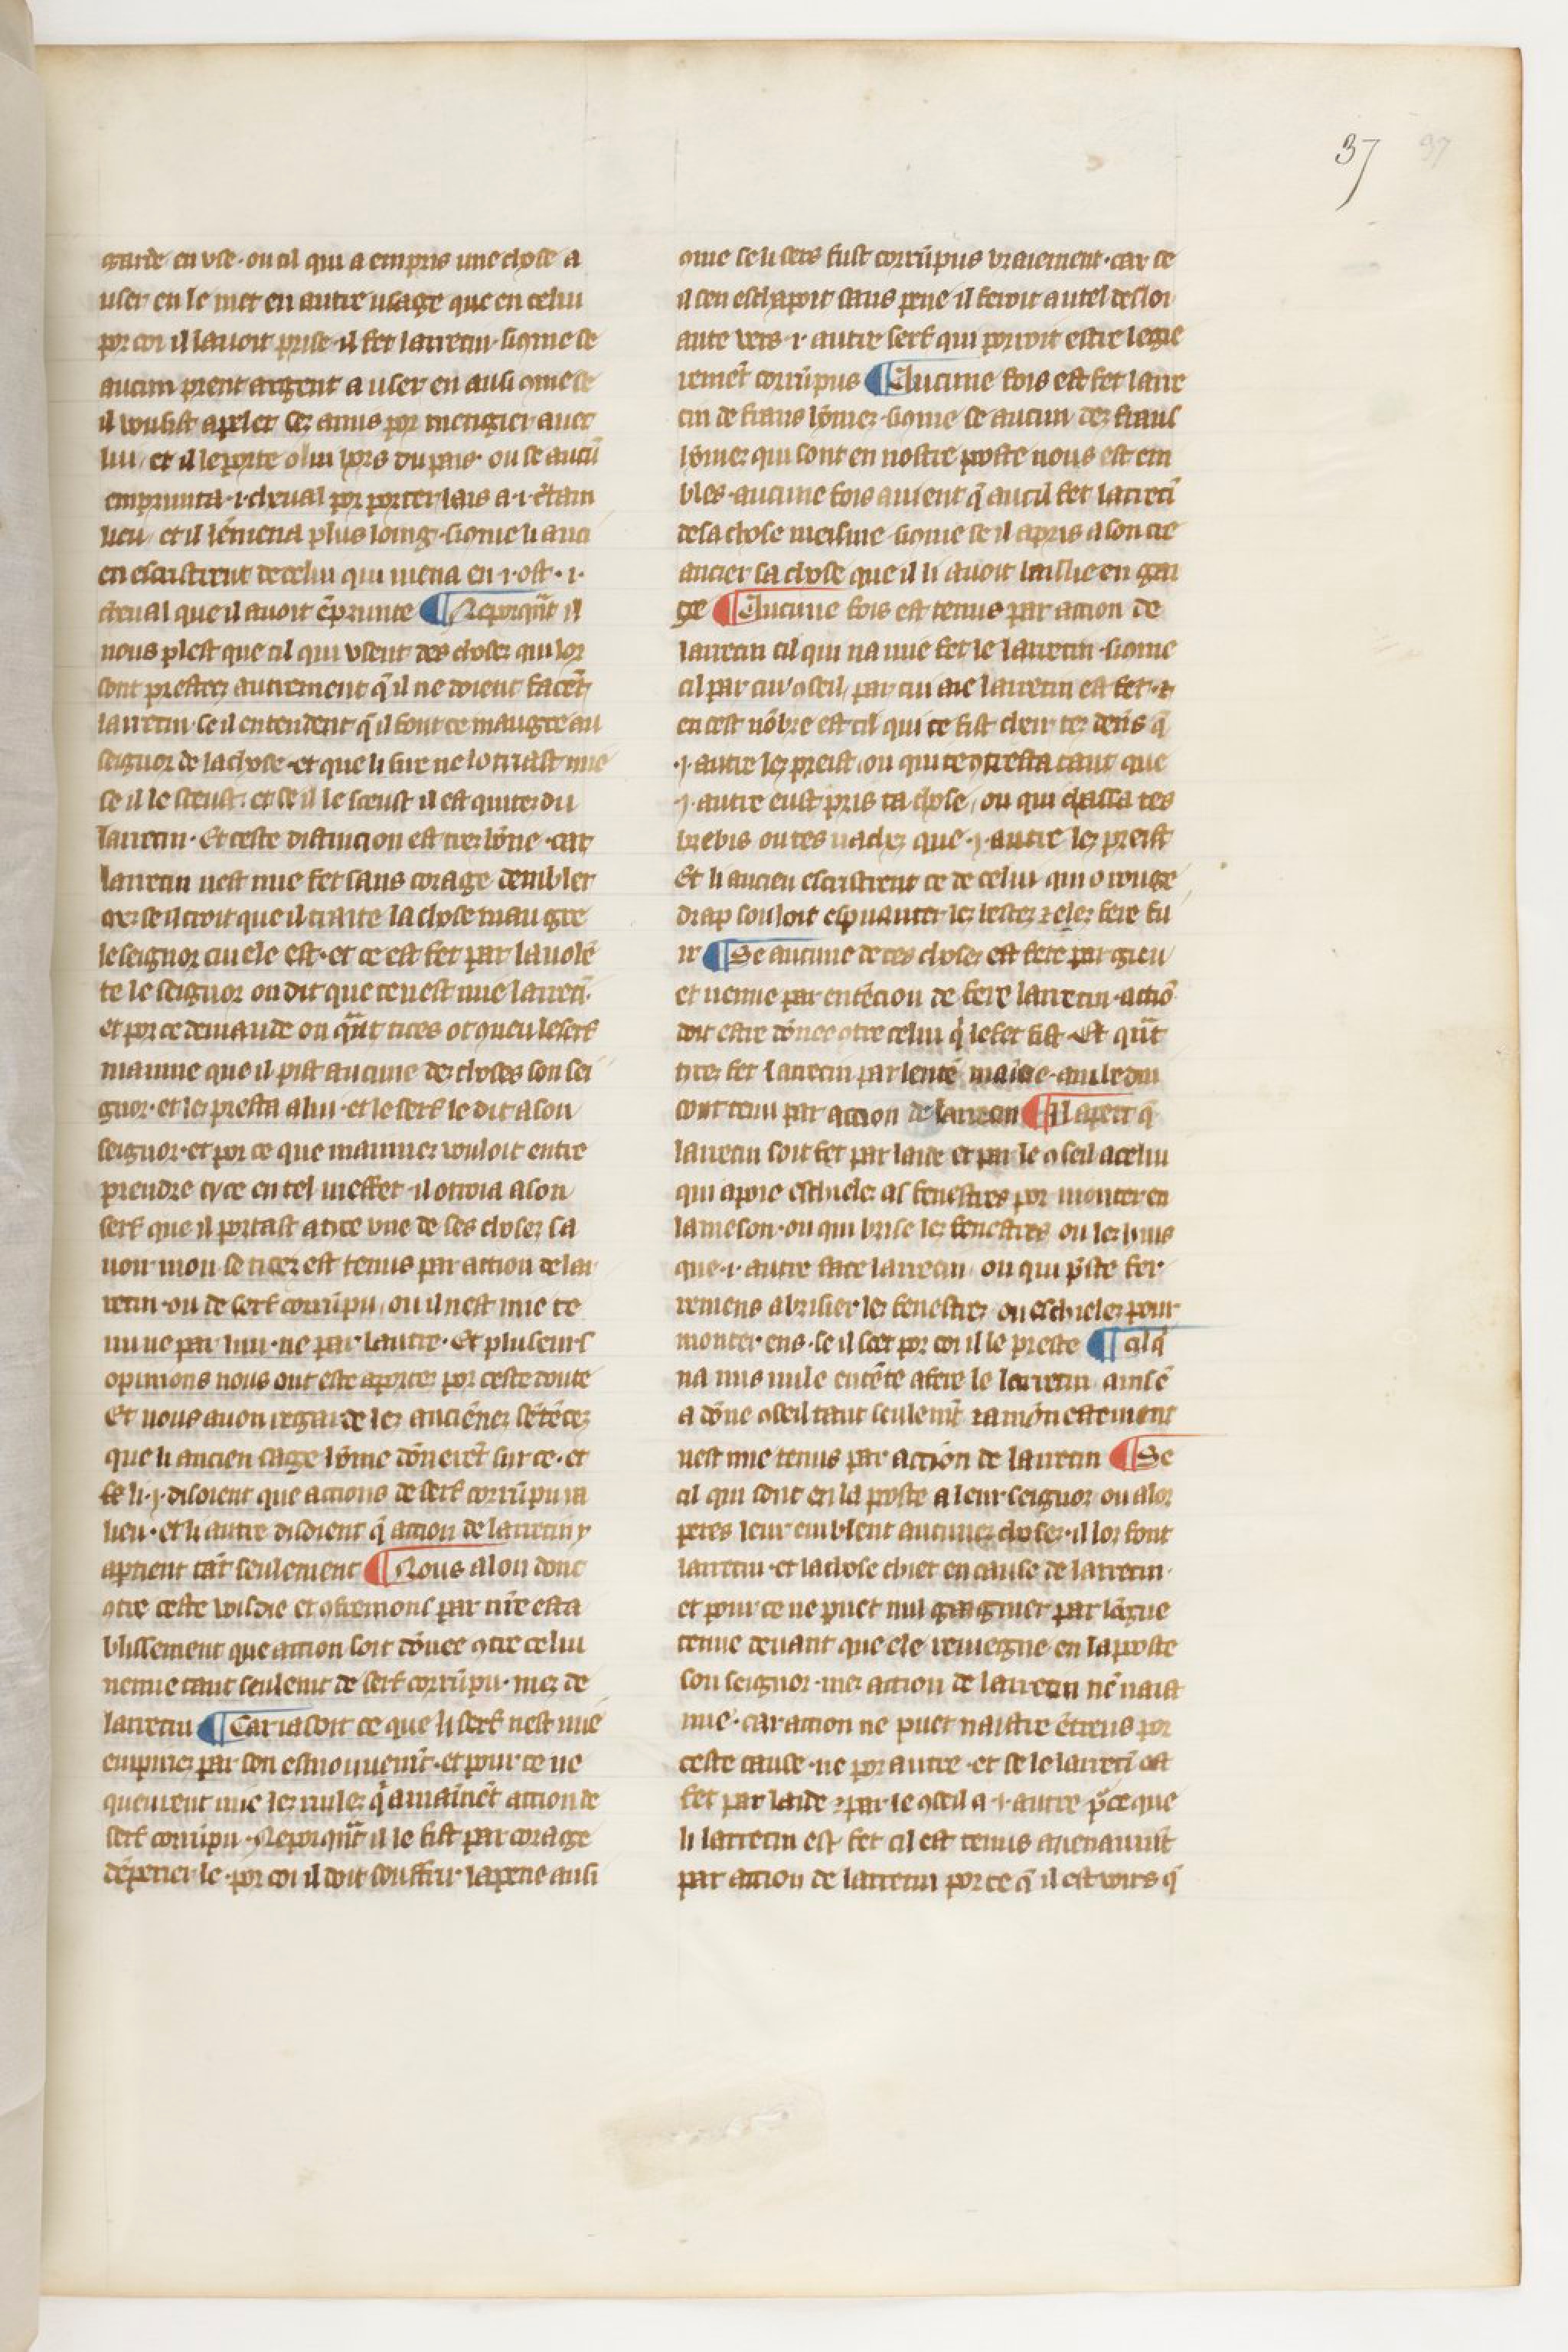 37 37
garde en vse · ou cil qui a empris une chose a
user en le met en autre usage que en celui
por coi il lauoit prise · il fet larrecin · si ɔme se
aucun prent argent a user en ausi ɔme se
il vousist apeler sez amis por mengier auec
lui / et il le porte o lui hors du pais · ou se aucū
emprunta ·i· cheual por porter lais a ·i· c̄tain
lieu / et il lēmena plus loing · si ɔme li anci
en escristrent de celui qui mena en ·i· ost ·i·
cheual que il auoit ēprunte ¶ Neporq̄nt il
nous plest que cil qui vsent des chosez qui lor
sont presteez autrement q̄ il ne doient facēt
larrecin · se il entendent q̄ il font ce maugre au
seignor de la chose · et que li sire ne lotriast mie
se il le sceust · et se il le sceust il est quitez du
larrecin · Et ceste distincion est trez bōne · car
larrecin nest mie fet sans corage dembler
mez se il croit que il traite la chose maugre
le seignor cui ele est · et ce est fet par la uolē
te le seignor on dit que ce nest mie larrecī ·
et por ce demande on q̄nt tices ot ɔneu le serf
mauuie que il prist aucune dez choses son sei
gnor · et lez presta a lui · et le serf le dit a son
seignor · et por ce que mauuiez vouloit entre
prendre tyce en tel meffet · il otroia a son
serf que il portast a tyce vne de ses chosez sa
uoir mon se ticez est tenus par action de lar
recin · ou de serf corrūpu / ou il nest mie te
nu ne par lun · ne par lautre · Et pluseurs
opinions nous ont este aportez por ceste doute
Et nous auon regarde lez anciēnez sētēcez
que li ancien sage hōme dōnerēt sur ce · et
se li ·j· disoient que actions de serf corrūpu i a
lieu · et li autre disoient q̄ action de larrecin y
apartient tāt seulement ¶ Nous alon donc
ɔtre ceste voisdie et ɔfremons par nr̄e esta
blissement que action soit dōnee ɔtre celui
nemie tant seulemt de serf corrūpu · mez de
larrecin ¶ Car ia soit ce que li serf nest mie
empiriez par son esmouuemt · et pour ce ne
queurent mie lez rulez q̄ amainēt action de
serf corrūpu · Neporq̄nt il le fist par corage
dēpirier le · por coi il doit souffrir la peine ausi
ɔme se li sers fust corrūpus vraiement · car se
il sen eschapoit sans peine il feroit autel desloi
aute vers ·i· autre serf qui porroit estre legie
remēt corrūpus ¶ Aucune fois est fet larre
cin de frans hōmez · si ɔme se aucun dez frans
hōmez qui sont en nostre poste nous est em
bles · aucune fois auient q̄ aucū fet larrecī
de sa chose meisme · si ɔme se il a pris a son cre
ancier sa chose que il li auoit laissie en ga
ge ¶ Aucune fois est tenus par action de
larrecin cil qui na mie fet le larrecin · si ɔme
cil par cui ɔseil / par cui aie larrecin est fet · ⁊
en cest nōbre est cil qui te fist cheir tez den̄s q̄
·j· autre lez preist / ou qui te ɔtresta tant que
·j· autre eust pris ta chose / ou qui chassa tes
brebis ou tes uachez que ·j· autre lez preist
Et li ancien escristrent ce de celui qui o rouge
drap souloit espuanter lez bestez ⁊ elez fere fu
ir ¶ Se aucune de ces chosez est fete par gieu
et nemie par entēcion de fere larrecin · actiō
doit estre dōnee ɔtre celui q̄ le fet fist · Et q̄nt
ticez fet larrecin par lente mauie · ambedui
sont tenu par action de larrecin ¶ Il apert q̄
larrecin soit fet par laide et par le ɔseil a celui
qui apoie eschielez as fenestres por monter en
la meson · ou qui brise lez fenestres ou lez huis
que ·i· autre face larrecin / ou qui p̄ste fer
remens a brisier lez fenestrez / ou eschielez pour
monter ens · se il scet por coi il le preste ¶ cil q̄
na mis nule entēte a fere le larrecin ainsē
a dōne ɔseil tant seulemt̄ ⁊ amōnestement
nest mie tenus par action de larrecin ¶ Se
cil qui sont en la poste a leur seignor ou a lor
peres leur emblent aucunez chosez · il lor font
larrecin · et la chose chiet en cause de larrecin ·
et pour ce ne puet nul gaagnier par lōgue
tenue deuant que ele reuiegne en la poste
son seignor · mez action de larrecin nē naist
mie · car action ne puet naistre ētreus por
ceste cause · ne por autre · et se le larrecī est
fet par laide ⁊ par le ɔseil a ·i· autre p̄ ce que
li larrecin est fet cil est tenus auenaumt
par action de larrecin por ce q̄ il est voirs q̄